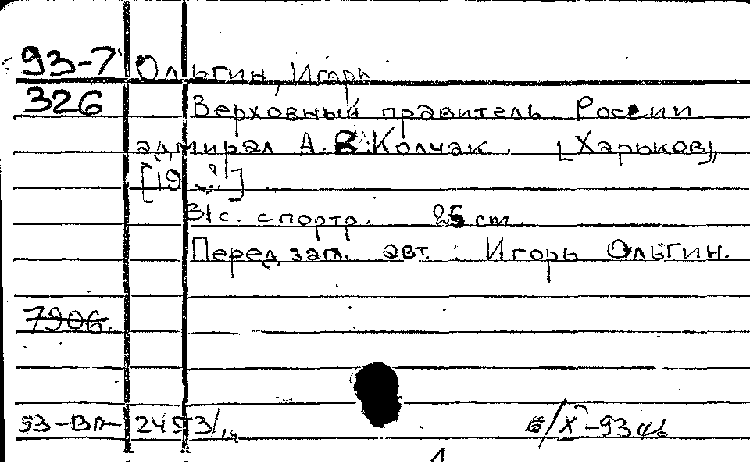 93-7 Ольгин, Игорь
326 Верховный правитель России
адмирал А.В. Колчак. [Харьков],
[19
31с. с портр. 25 cm
Перед загл. авт.: Игорь Ольгин.
7906.
93-ВЛ- 2493/14 /X-93